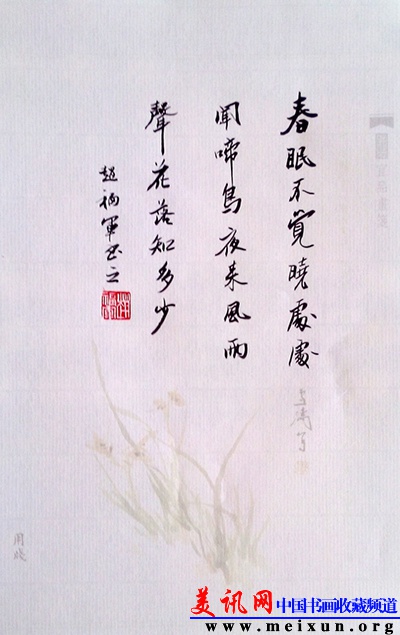 春眠不覺曉處處
聞啼鳥夜来風雨
聲花落知多少
趙福軍書之
美讯网 中国书画收藏频道
www.meixun.org